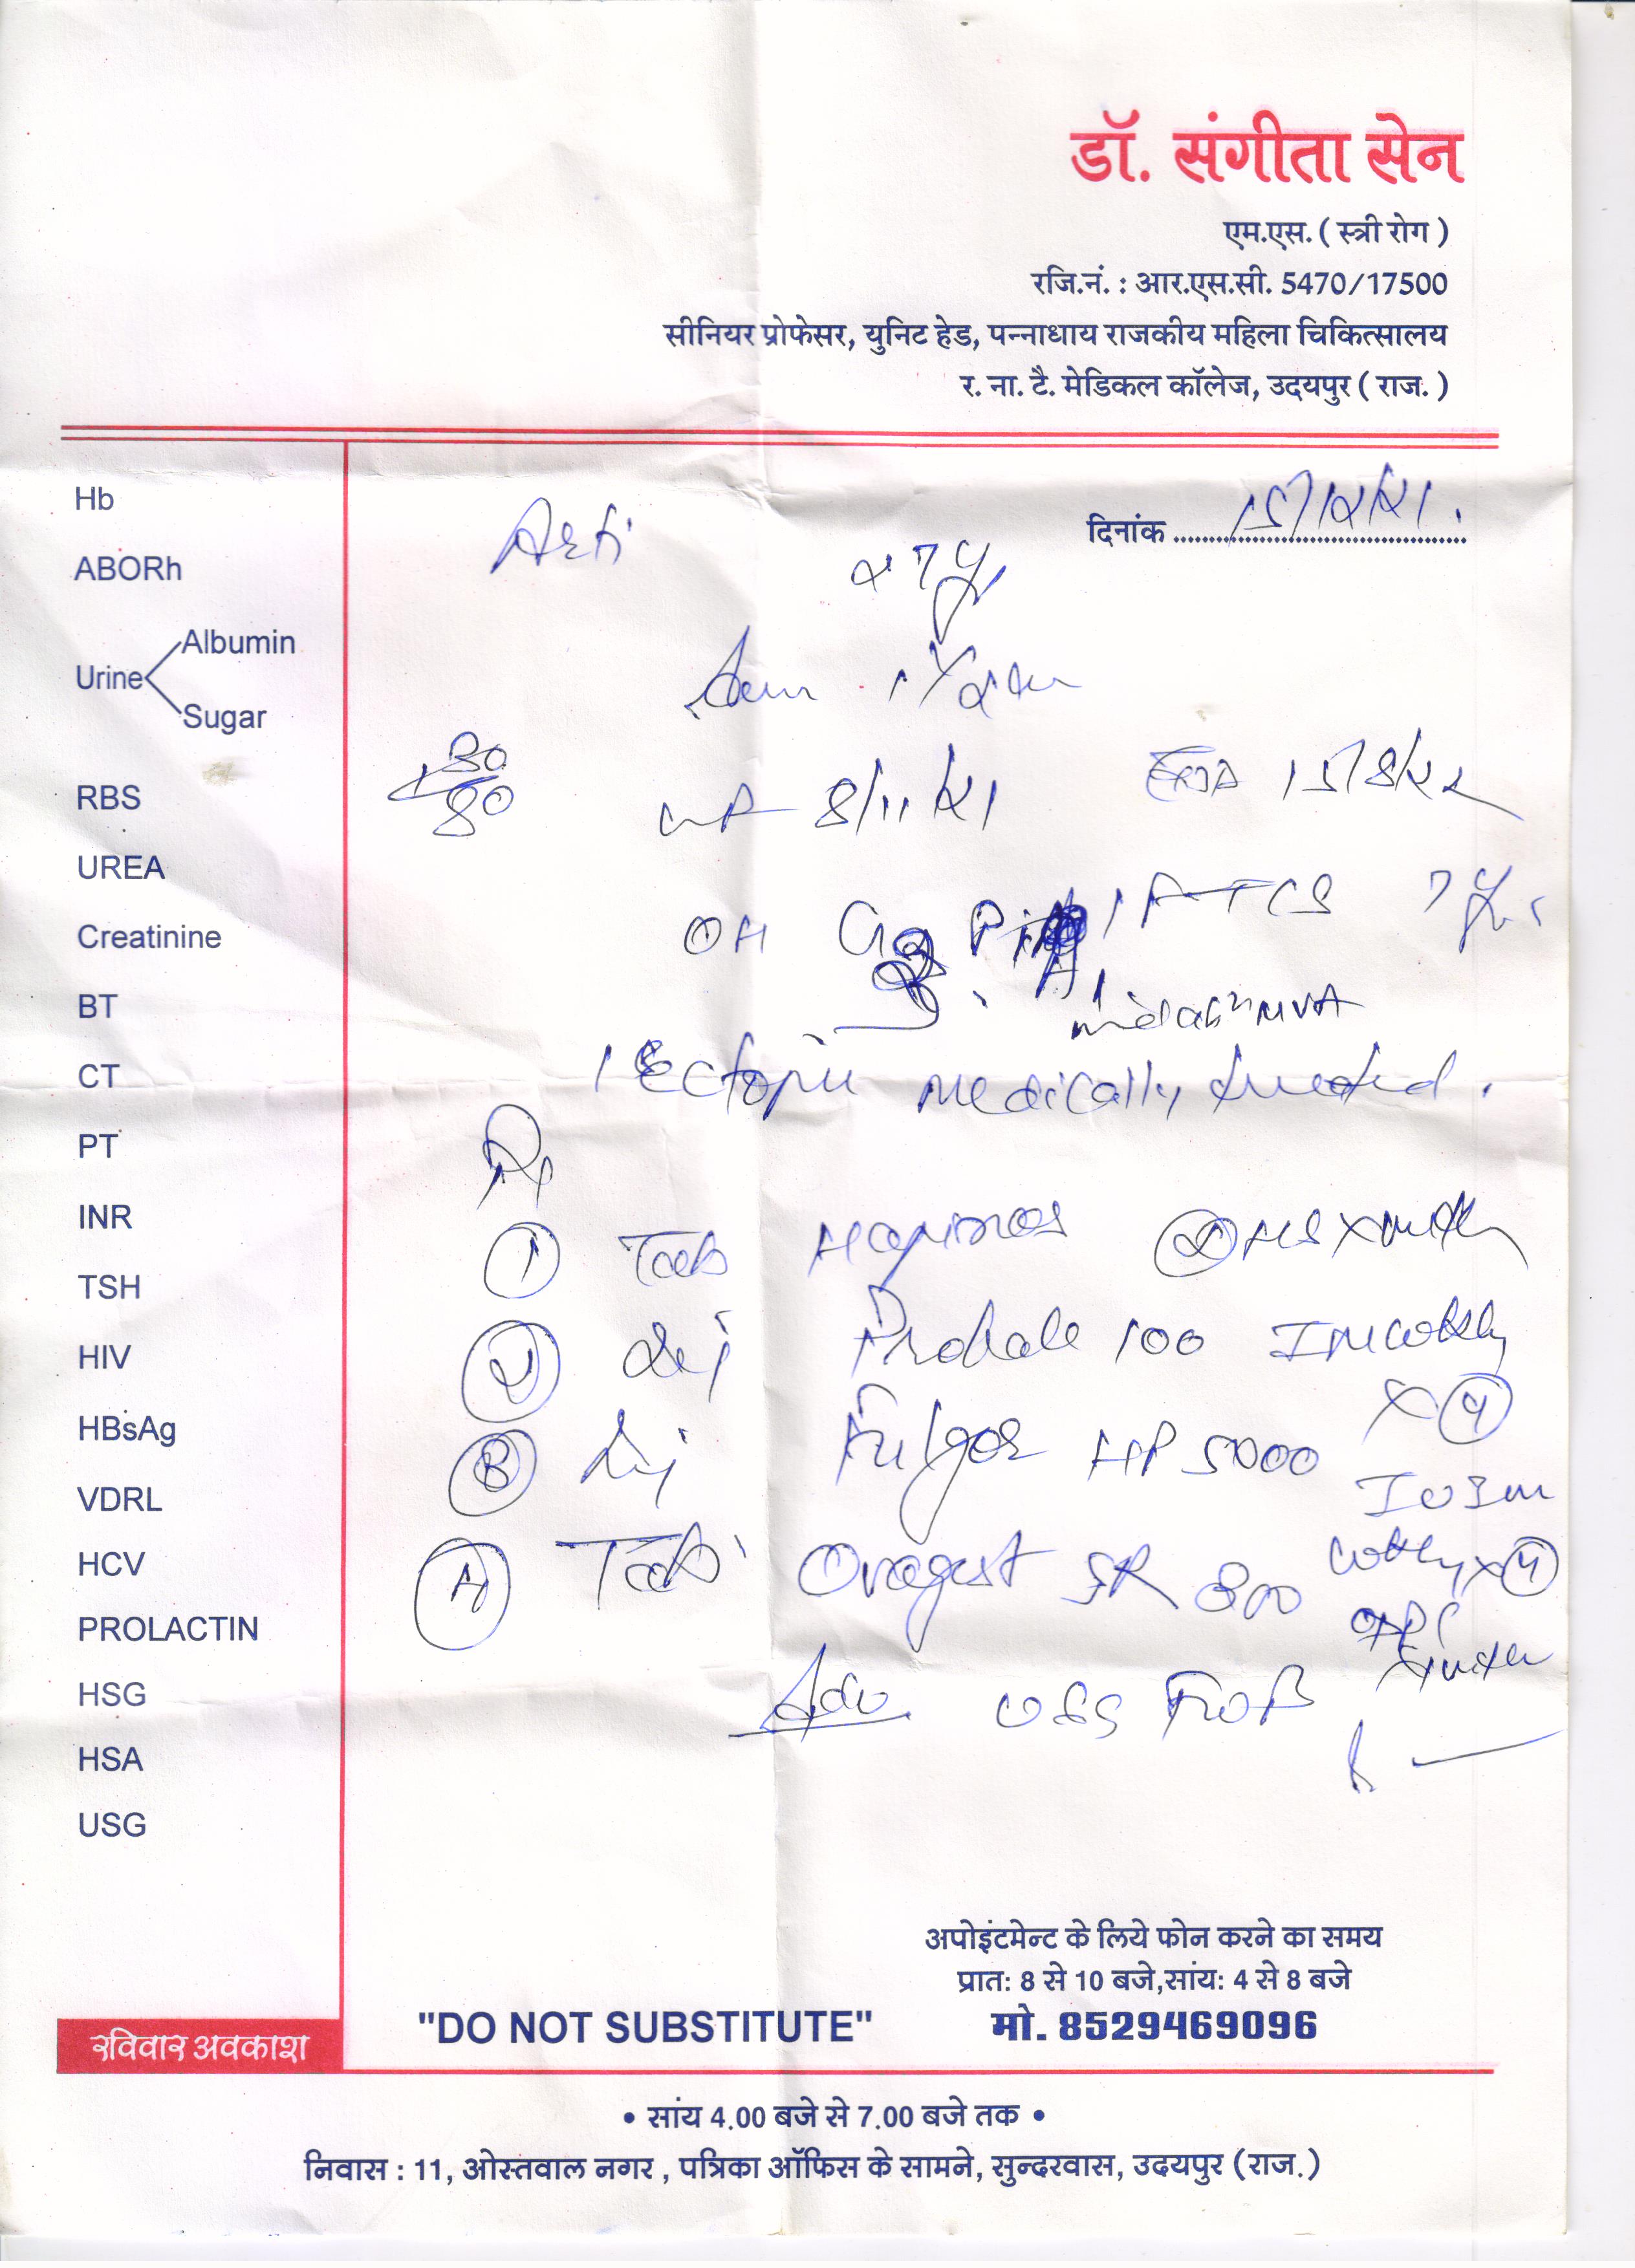 डॉ. संगीता सेन
एम.एस. ( स्त्री रोग )
रजि.नं. : आर.एस.सी. 5470/17500
सीनियर प्रोफेसर, युनिट हेड, पन्नाधाय राजकीय महिला चिकित्सालय
र. ना. टै. मेडिकल कॉलेज, उदयपुर ( राज. )
दिनांक 15/12/21.
Arti 27 yr
Hb
ABORh
Urine
Albumin
Sugar
RBS
UREA
Creatinine
BT
CT
PT
INR
TSH
HIV
HBsAg
VDRL
HCV
PROLACTIN
HSG
HSA
USG
130/80
LMP 8/11/21 EDD 15/8/22
OH G 1 FTCS 7 yr
A1 MVA
1 Ectopic medically treated.
Rx
1 Tab HS x
2 Inj 100 IM weekly x 4
3 Inj HP 5000 IU IM weekly x 4
4 Tab SR 300
Adv USG
रविवार अवकाश
अपोइंटमेन्ट के लिये फोन करने का समय
प्रातः 8 से 10 बजे,सांयः 4 से 8 बजे
"DO NOT SUBSTITUTE" मो. 8529469096
• सांय 4.00 बजे से 7.00 बजे तक •
निवास : 11, ओस्तवाल नगर , पत्रिका ऑफिस के सामने, सुन्दरवास, उदयपुर (राज.)